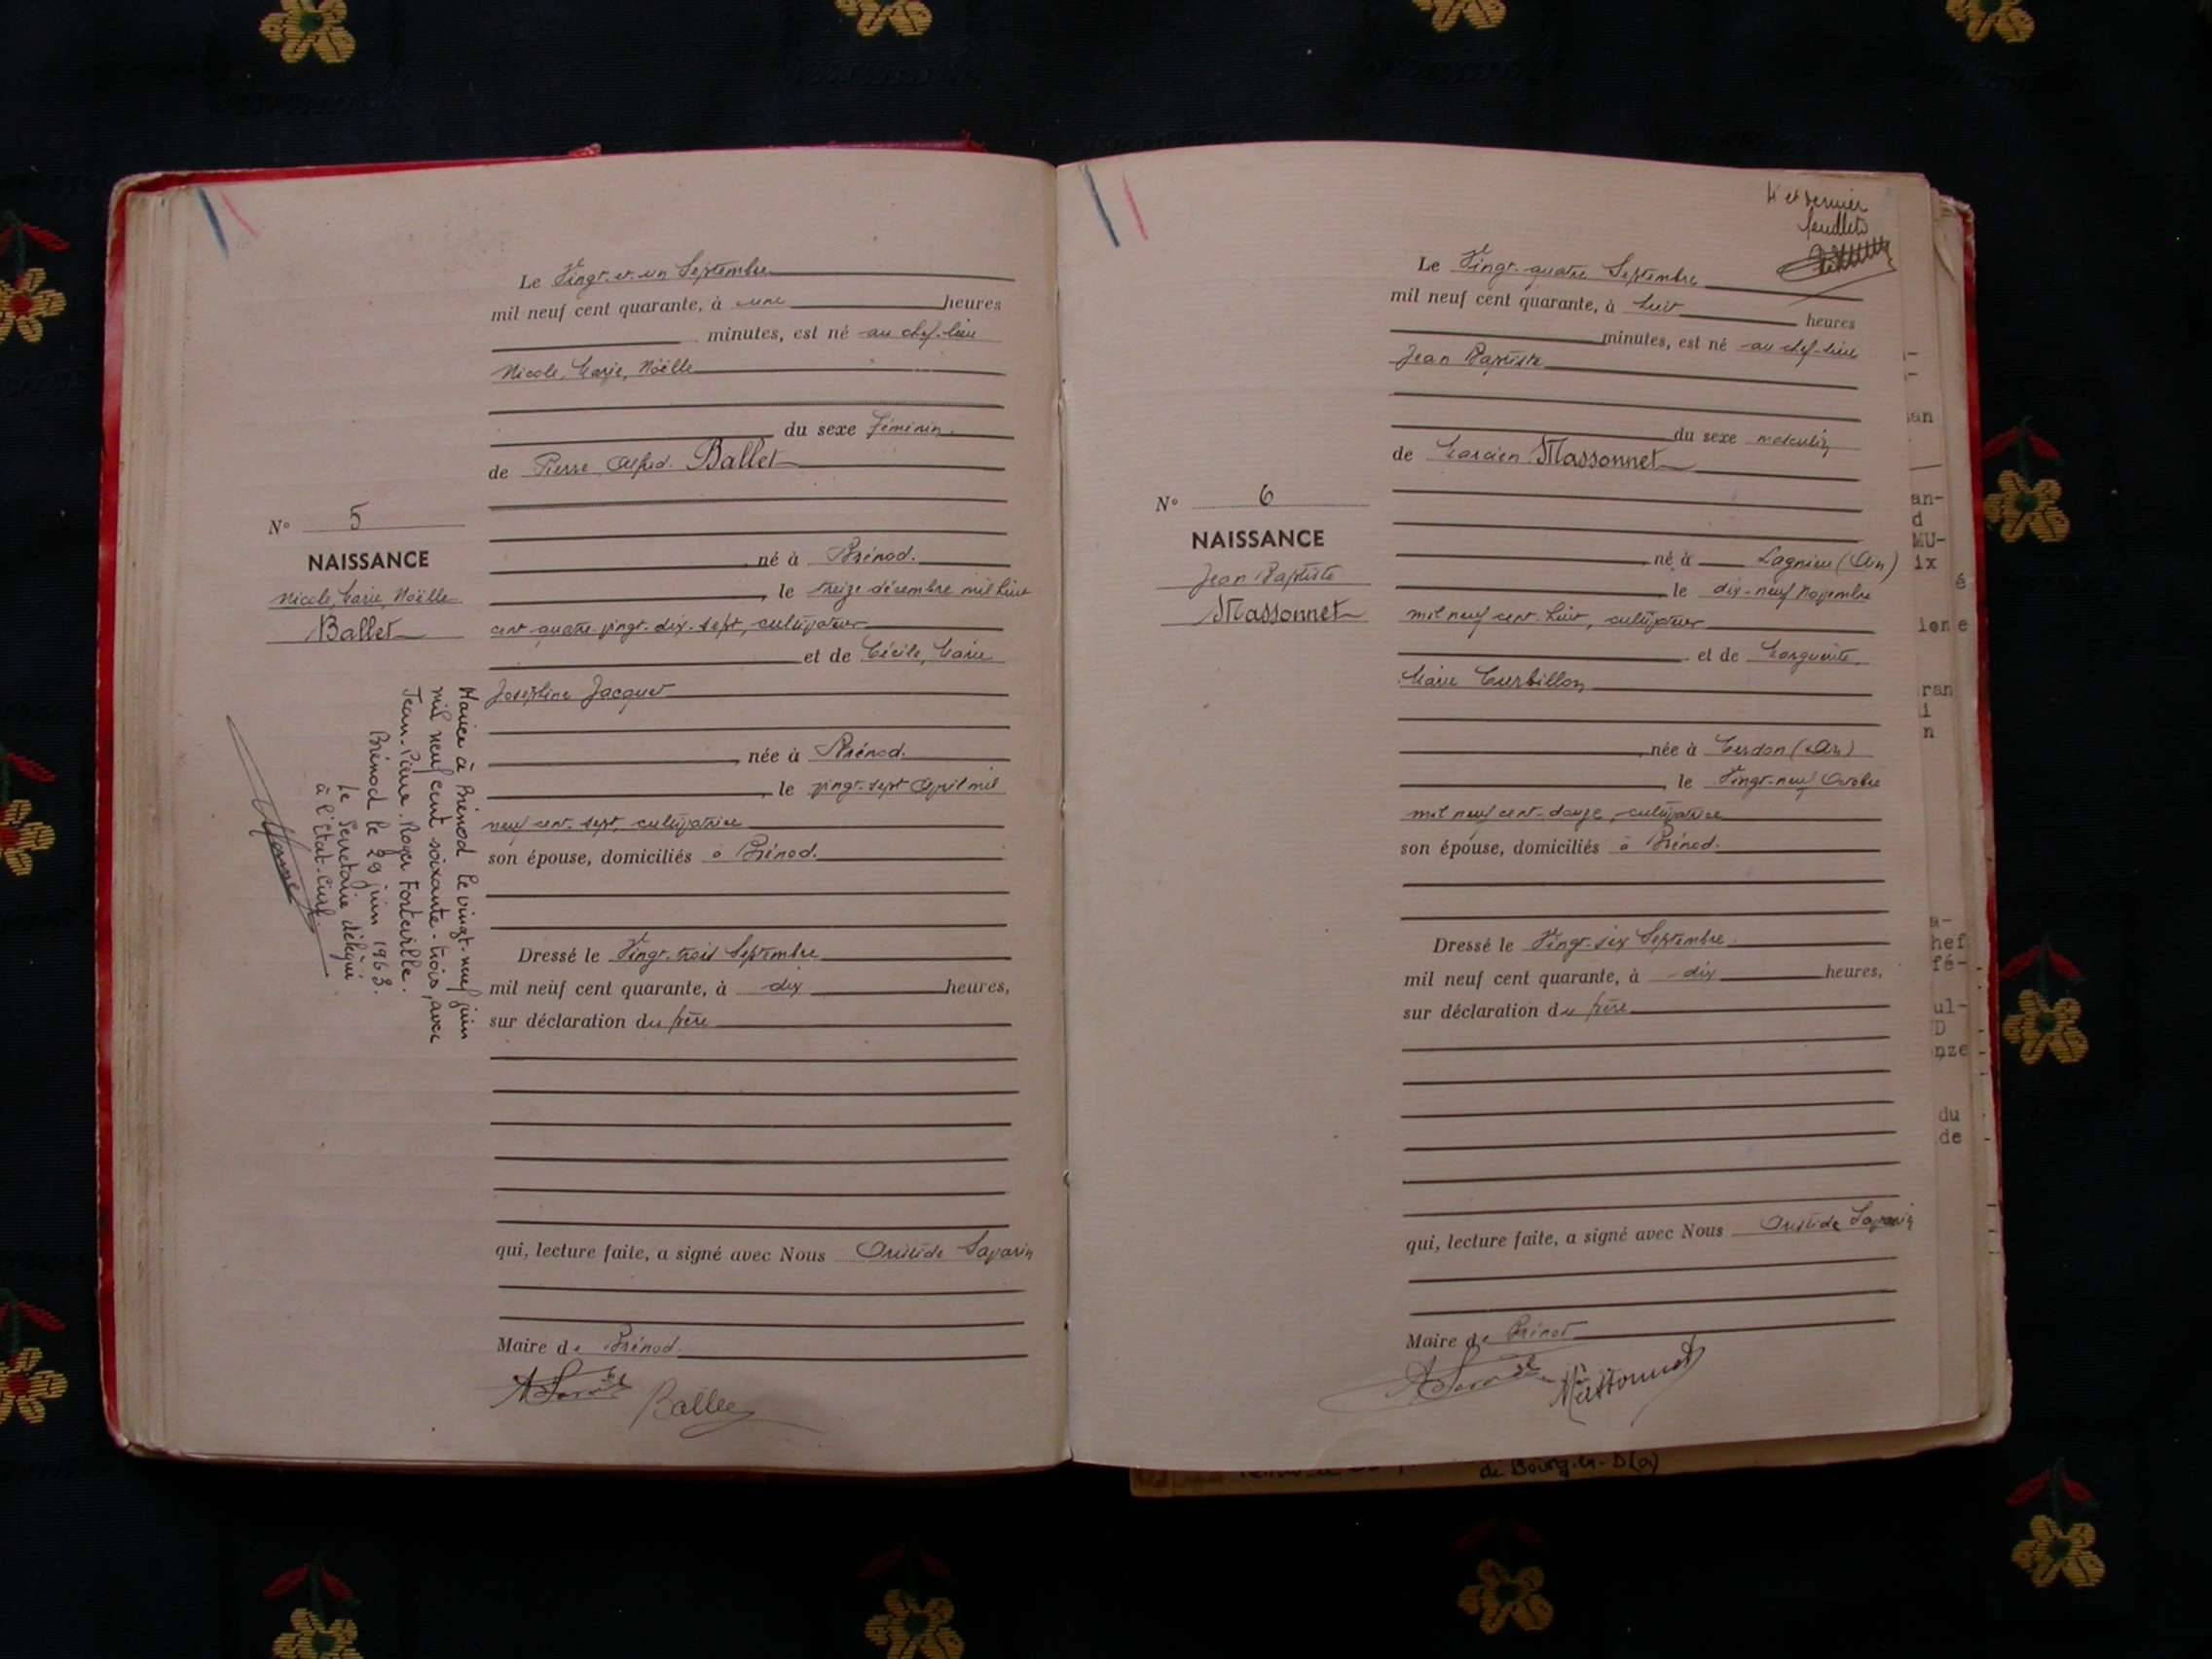 Le Vingt-et-un Septembre
mil neuf cent quarante, à une heures
minutes, est né au chef-lieu
Nicole, Marie, Noëlle
du sexe féminin.
de Pierre Alfred Ballet
N° 5
NAISSANCE
Nicole, Marie, Noëlle
Ballet
né à Brénod.
, le treize décembre mil huit
cent quatre-vingt-dix-sept, cultivateur
et de Cécile, Marie
Joséphine Jacquet
, née à Brénod.
, le vingt-sept Avril mil
neuf cent sept, cultivatrice
son épouse, domiciliés à Brénod.
Dressé le Vingt-trois Septembre
mil neuf cent quarante, à dix heures,
sur déclaration du père
qui, lecture faite, a signé avec Nous Aristide Savarin
Maire de Brénod.
Ballet
Mariée à Brénod le vingt-neuf juin
mil neuf cent soixante-trois, avec
Jean-Pierre-Roger
Brénod le 29 juin 1963.
Le Secrétaire délégué
à l'Etat-Civil.
4e et dernier
feuillets
Le Vingt-quatre Septembre
mil neuf cent quarante, à huit heures
minutes, est né au chef-lieu
Jean Baptiste
du sexe masculin
de Marcien Massonnet
N° 6
NAISSANCE
Jean Baptiste
Massonnet
né à Lagnieu (Ain)
, le dix-neuf Novembre
mil neuf cent huit, cultivateur
et de Marguerite
Marie Curbillon
, née à Cerdon (Ain)
, le Vingt-neuf Octobre
mil neuf cent douze, cultivatrice
son épouse, domiciliés à Brénod.
Dressé le Vingt-six Septembre
mil neuf cent quarante, à dix heures,
sur déclaration du père
qui, lecture faite, a signé avec Nous Aristide Savarin
Maire de Brénod
Massonnet
san
an-
d
MU-
ix
é
ion e
ran
i
n
hef
fé-
ul-
D
nze
du
de
de Bourg-en-B(a)